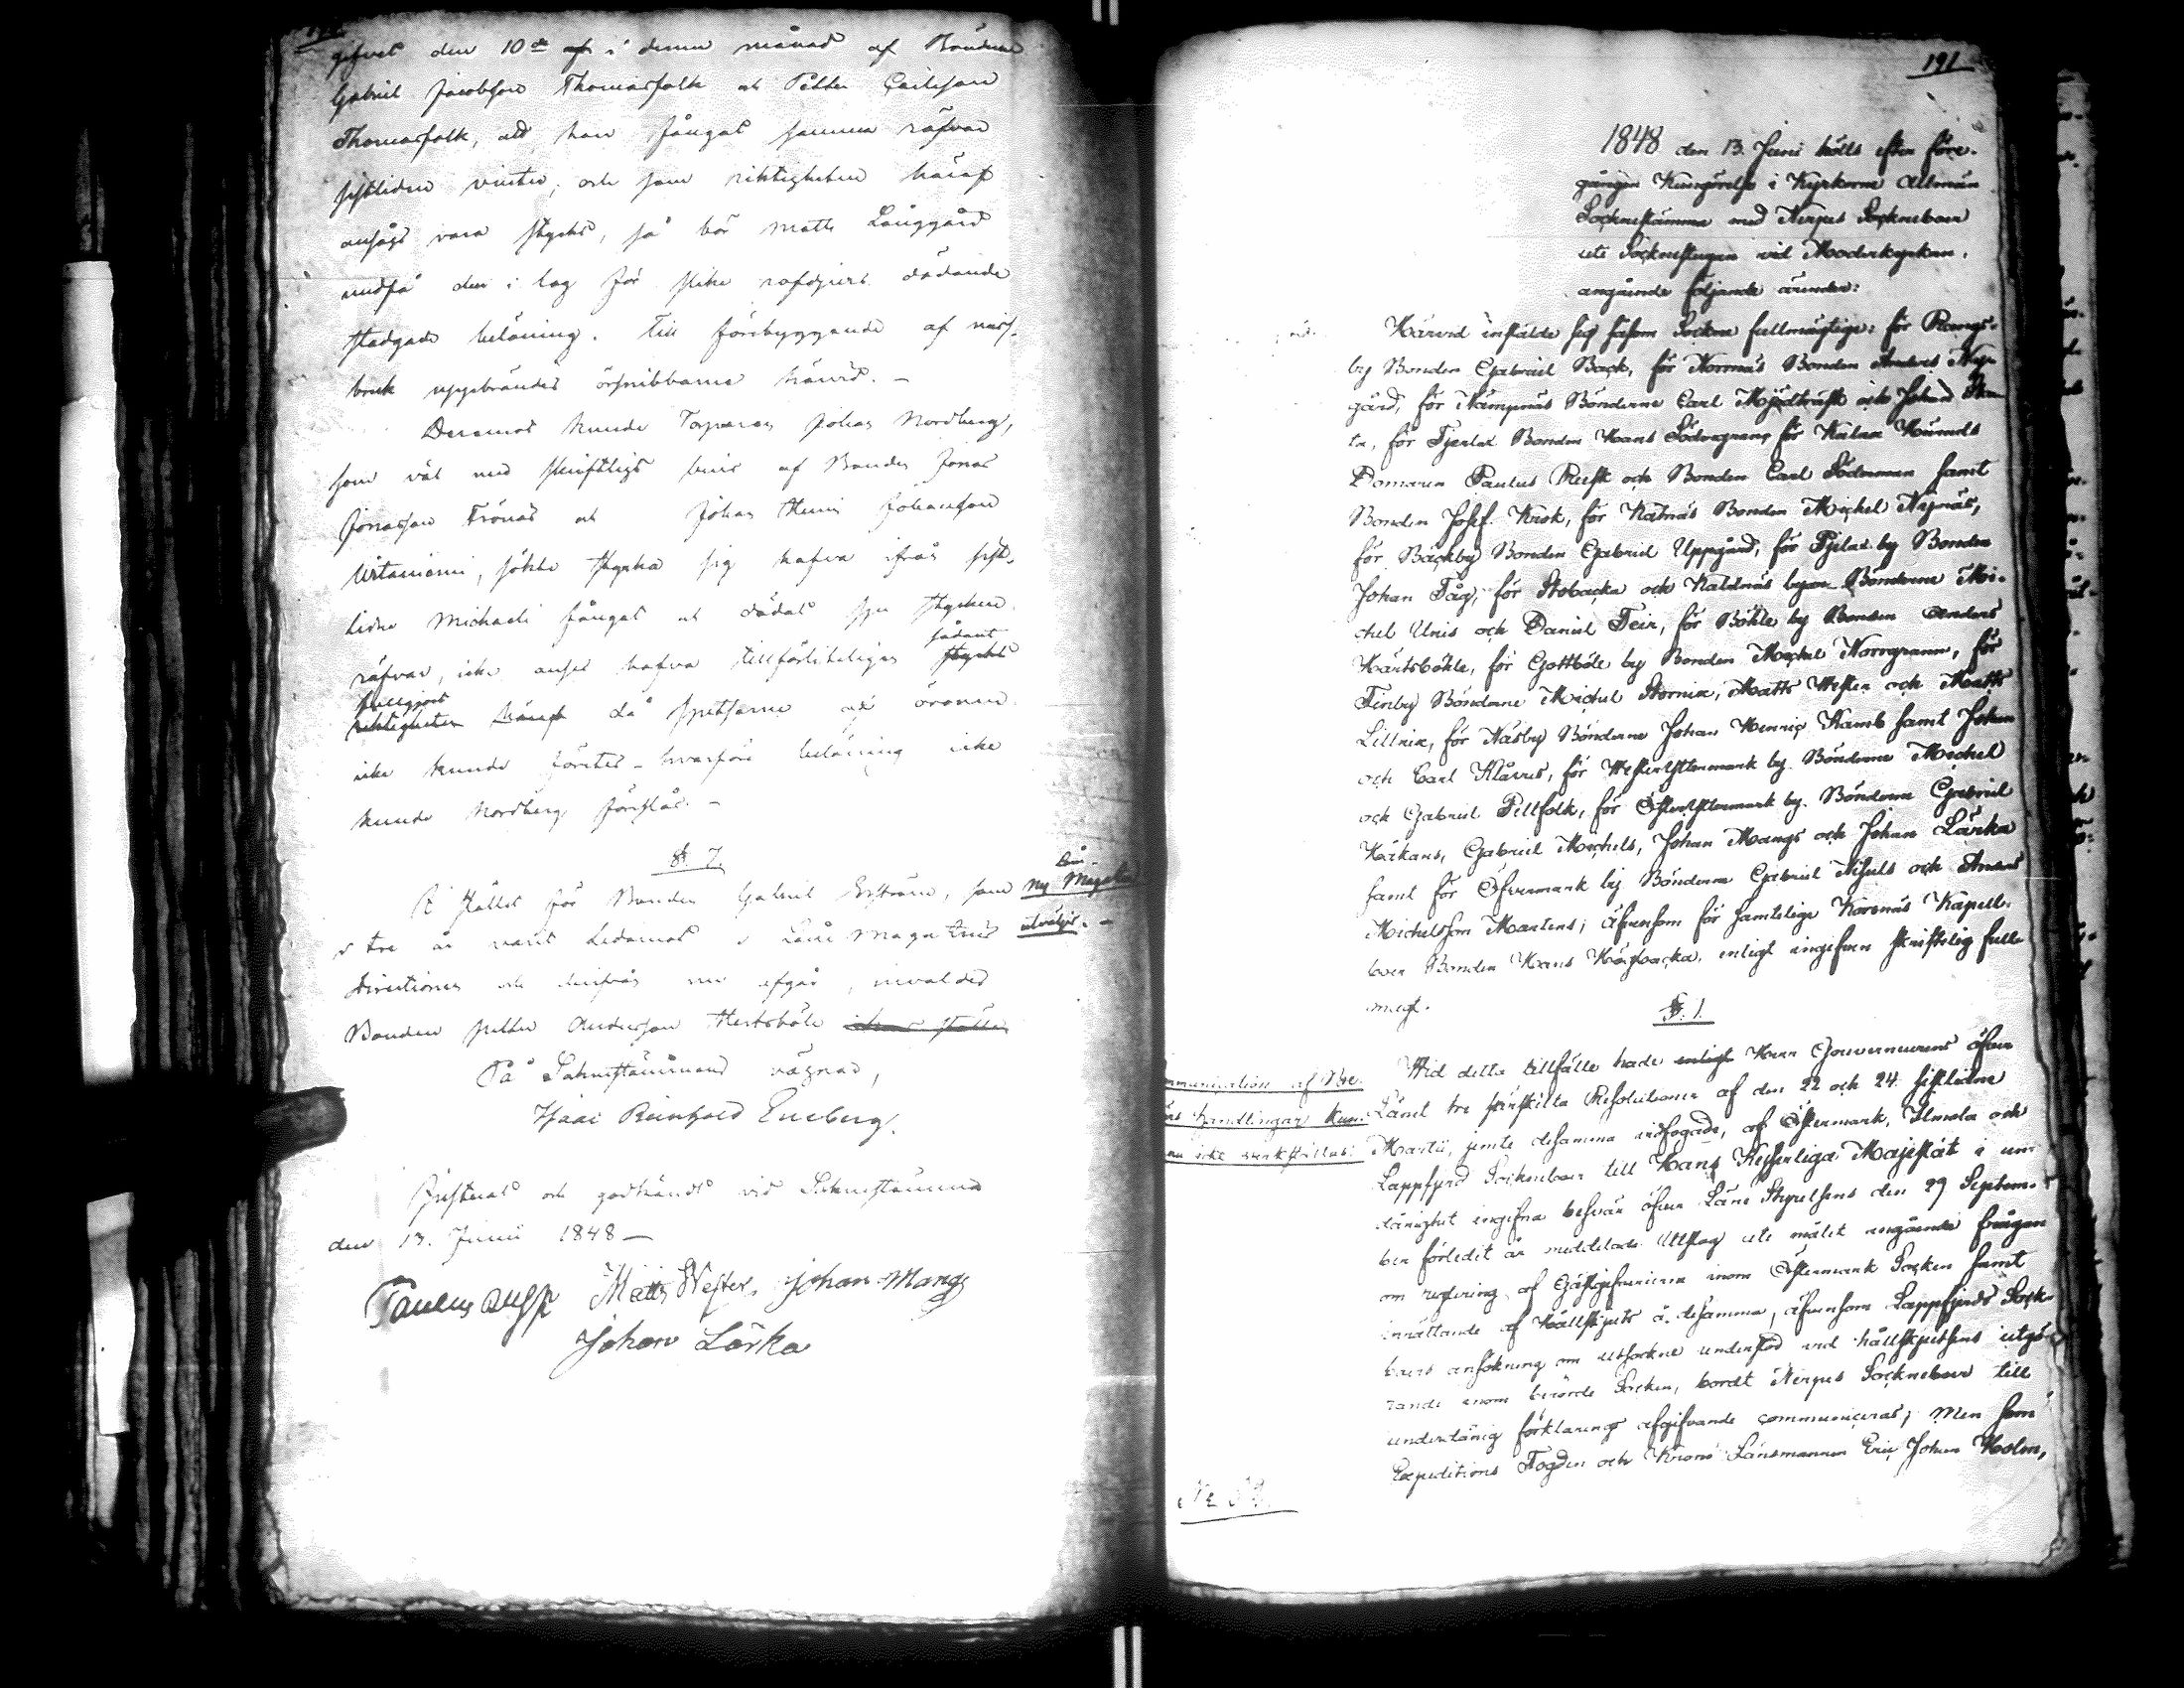 gifvet den 10de af i denne månad af Bönderne
Gabriel Jacobsson Thomasfolk och Petter Carlsson
Thomasfolk, att han fångat samma räfvar
sistliden vinter, och som riktigheten häraf
ansågs vara styrkt, så bör Matts Långgård
undfå den i lag för slike rofdjurs dödande
stadgade belöning. Till förebyggande af miss-
bruk uppbrändes örsnibbarne härvid. –
Deremot kunde Torparen Johan Nordberg,
som väl med skriftligt bevis af Bonden Jonas
Jonasson Frönäs och Johan Henric Johansson
sökte styrka sig hafva ifrån sist-
lidne Michaeli fångat och dödat sju stycken
sådant
räfvar, icke anses hafva tillförliteligen styrkt
fullgjort
riktigheten häraf då spetsarne af öronen
icke kunde företes – hvarföre belöning icke
kunde Nordberg föreslås. –
§ 7.
I stället för Bonden Gabriel Enström, som
i tre år varit Ledamot i Låne Magasins
Directionen och derifrån nu afgår, invaldes
Bonden Petter Andersson Hertsböle
Låne-
ny Magasins
utväljes. –
På Socknestämmans vägnar,
Isaac Reinhold Eneberg.
Justerat och godkändt vid Socknestämma
den 13. Junii 1848 –
Paulus Rusk Matts Wester, Johan Mangs
Johan Lärka
191
1848 den 13. Juni hölls efter före-
gången Kungörelse i Kyrkorne Allmän
Socknestämma med Nerpes Sockneboer
uti Socknestugan vid Moderkyrkan,
angående följande ärender:
Härvid instälde sig såsom Sockne fullmägtige: för Rangs-
by Bonden Gabriel Back, för Norrnäs Bonden Anders Ny-
gård, för Nämpnäs Bönderne Carl Mjödträsk och Johan
för Tjerlax Bonden Hans Södergrann, för Kalax Härads
Domaren Paulus Rusk och Bonden Carl Söderman samt
Bonden Josef Krok, för Kalnäs Bonden Michel Nynäs,
för Bäckby Bonden Gabriel Uppgård, för Pjelax by Bonden
Johan Tåg, för Stobacka och Kaldnäs byar Bönderne Mi-
chel Unis och Daniel Teir, för Böhle by Bonden Anders
Härtsböhle, för Gottböle by Bonden Michel Norrgrann, för
Finby Bönderne Michel Stornix, Matts Wester och Matts
Lillnix, för Näsby Bönderne Johan Henric Kamb samt Johan
och Carl Klåvus, för WesterYttermark by Bönderne Michel
och Gabriel Pellfolk, för ÖsterYttermark by Bönderne Gabriel
Håkans, Gabriel Michels, Johan Mangs och Johan Lärka
samt för Öfvermark by Bönderne Gabriel Nisuls och Anders
Michelsson Martens; äfvensom för samtelige Korsnäs Kapell-
boer Bonden Hans Högbacka, enligt ingifven skriftelig full-
magt.
§. 1.
Communication af Be-
svärs handlingar kun-
na icke verkställas.
Wid detta tillfälle hade enligt Herr Gouverneurens öfver
Länet tre särskilta Resolutioner af den 22 och 24 sistlidne
Martii, jemte desamma vidfogade, af Östermark, Ilmola och
Lappfjerd Socknboer till Hans Kejserliga Majestät i un-
dånighet ingifna besvär öfver Läne Styrelsens den 29 Septem-
ber förledit år meddelade Utslag uti målet angående frågan
om reglering af Gästgifverierne inom Östermark Socken samt
inrättande af Hållskjuts å desamma, äfvensom Lappfjerds Sock-
boers ansökning om utsockne understöd vid hållskjutsens utgö-
rande inom berörde Socken, bordt Nerpes Socknboer till
underdånig förklarings afgifvande communiceras; Men som
Expeditions Fogden och Krono Länsmannen Eric Johan Holm,